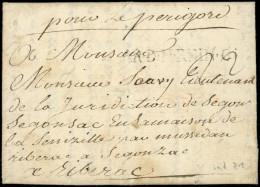 pour le perigord
A Monsieur
Monsieur Saavy Lieutenant
de la Juridiction de Segon
Segonsac En sa maison de
la par mussedan
riberac a Segonzac
a riberac